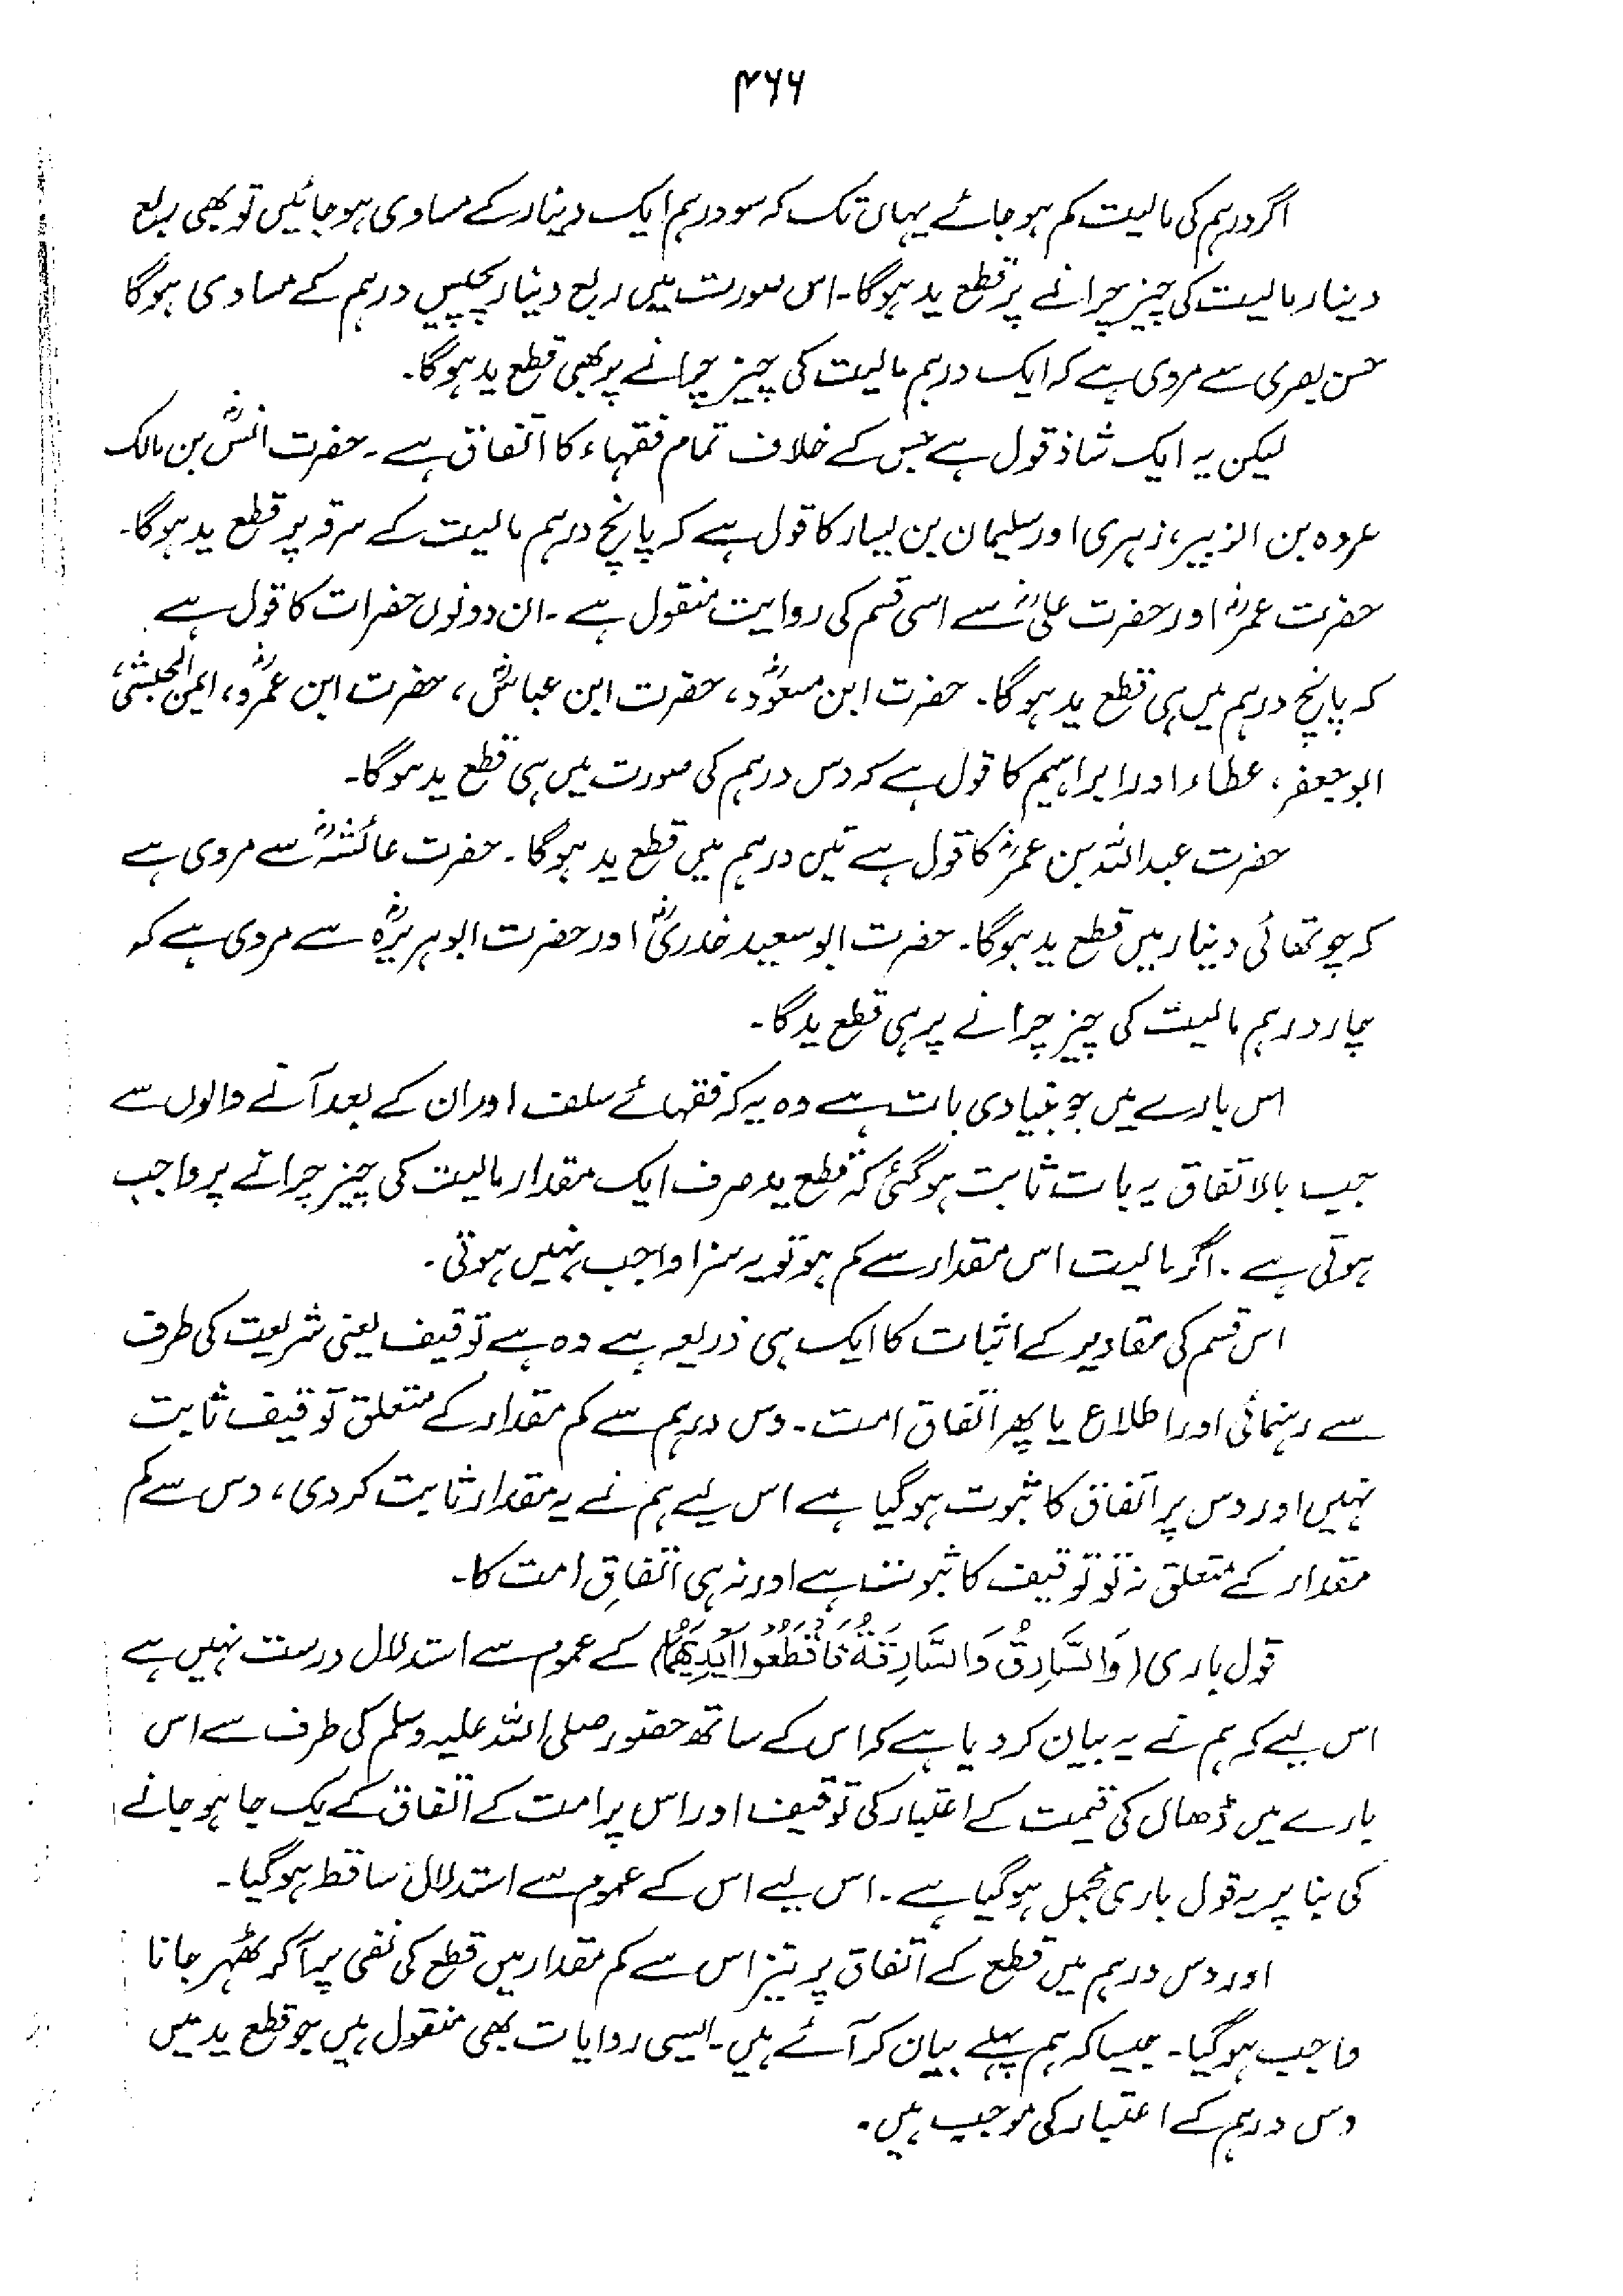 ۴۶۶
اگر درہم کی مالیت کم ہو جائے یہاں تک کہ سو درہم ایک دینار کے مساوی ہو جائیں تو بھی ربع
دینار مالیت کی چیز چرانے پر قطع ید ہوگا۔ اس صورت میں ربع دینار پچیس درہم کے مساوی ہوگا
حسن بصری سے مروی ہے کہ ایک درہم مالیت کی چیز چرانے پر بھی قطع ید ہوگا۔
لیکن یہ ایک شاذ قول ہے جس کے خلاف تمام فقہاء کا اتفاق ہے۔ حضرت انسؓ بن مالک
عروہ بن الزبیر، زہری اور سلیمان بن یسار کا قول ہے کہ پانچ درہم مالیت کے سرقہ پر قطع ید ہوگا۔
حضرت عمرؓ اور حضرت علیؓ سے اسی قسم کی روایت منقول ہے۔ ان دونوں حضرات کا قول ہے
کہ پانچ درہم میں ہی قطع ید ہوگا۔ حضرت ابن مسعودؓ، حضرت ابن عباسؓ، حضرت ابن عمروؓ، ایمن الحبشیؓ،
ابوجعفر، عطاء اور ابراہیم کا قول ہے کہ دس درہم کی صورت میں ہی قطع ید ہوگا۔
حضرت عبداللہ بن عمرؓ کا قول ہے تین درہم میں قطع ید ہوگا۔ حضرت عائشہؓ سے مروی ہے
کہ چوتھائی دینار میں قطع ید ہوگا۔ حضرت ابو سعید خدریؓ اور حضرت ابوہریرہؓ سے مروی ہے کہ
چار درہم مالیت کی چیز چرانے پر ہی قطع ید گا۔
اس بارے میں جو بنیادی بات ہے وہ یہ کہ فقہائے سلف اور ان کے بعد آنے والوں سے
جیسا بالاتفاق یہ بات ثابت ہوگئی کہ قطع ید صرف ایک مقدار مالیت کی چیز چرانے پر واجب
ہوتی ہے۔ اگر مالیت اس مقدار سے کم ہو تو یہ سزا واجب نہیں ہوتی۔
اس قسم کی مقادیر کے اثبات کا ایک ہی ذریعہ ہے وہ ہے توقیف یعنی شریعت کی طرف
سے رہنمائی اور اطلاع یا پھر اتفاق امت۔ دس درہم سے کم مقدار کے متعلق توقیف ثابت
نہیں اور دس پر اتفاق کا ثبوت ہوگیا ہے اس لیے ہم نے یہ مقدار ثابت کردی، دس سے کم
مقدار کے متعلق نہ تو توقیف کا ثبوت ہے اور نہ ہی اتفاقِ امت کا۔
قول باری (وَالسَّارِقُ وَالسَّارِقَةُ فَاقْطَعُوْا اَيْدِيَهُمَا) کے عموم سے استدلال درست نہیں ہے
اس لیے کہ ہم نے یہ بیان کردیا ہے کہ اس کے ساتھ حضور صلی اللہ علیہ وسلم کی طرف سے اس
بارے میں ڈھال کی قیمت کے اعتبار کی توقیف اور اس پر امت کے اتفاق کے یک جا ہوجانے
کی بنا پر یہ قول باری مجمل ہوگیا ہے۔ اس لیے اس کے عموم سے استدلال ساقط ہوگیا۔
اور دس درہم میں قطع کے اتفاق پر نیز اس سے کم مقدار میں قطع کی نفی پر آکر ٹھہر جانا
واجب ہوگیا۔ جیسا کہ ہم پہلے بیان کر آئے ہیں۔ ایسی روایات بھی منقول ہیں جو قطع ید میں
دس درہم کے اعتبار کی موجب ہیں۔